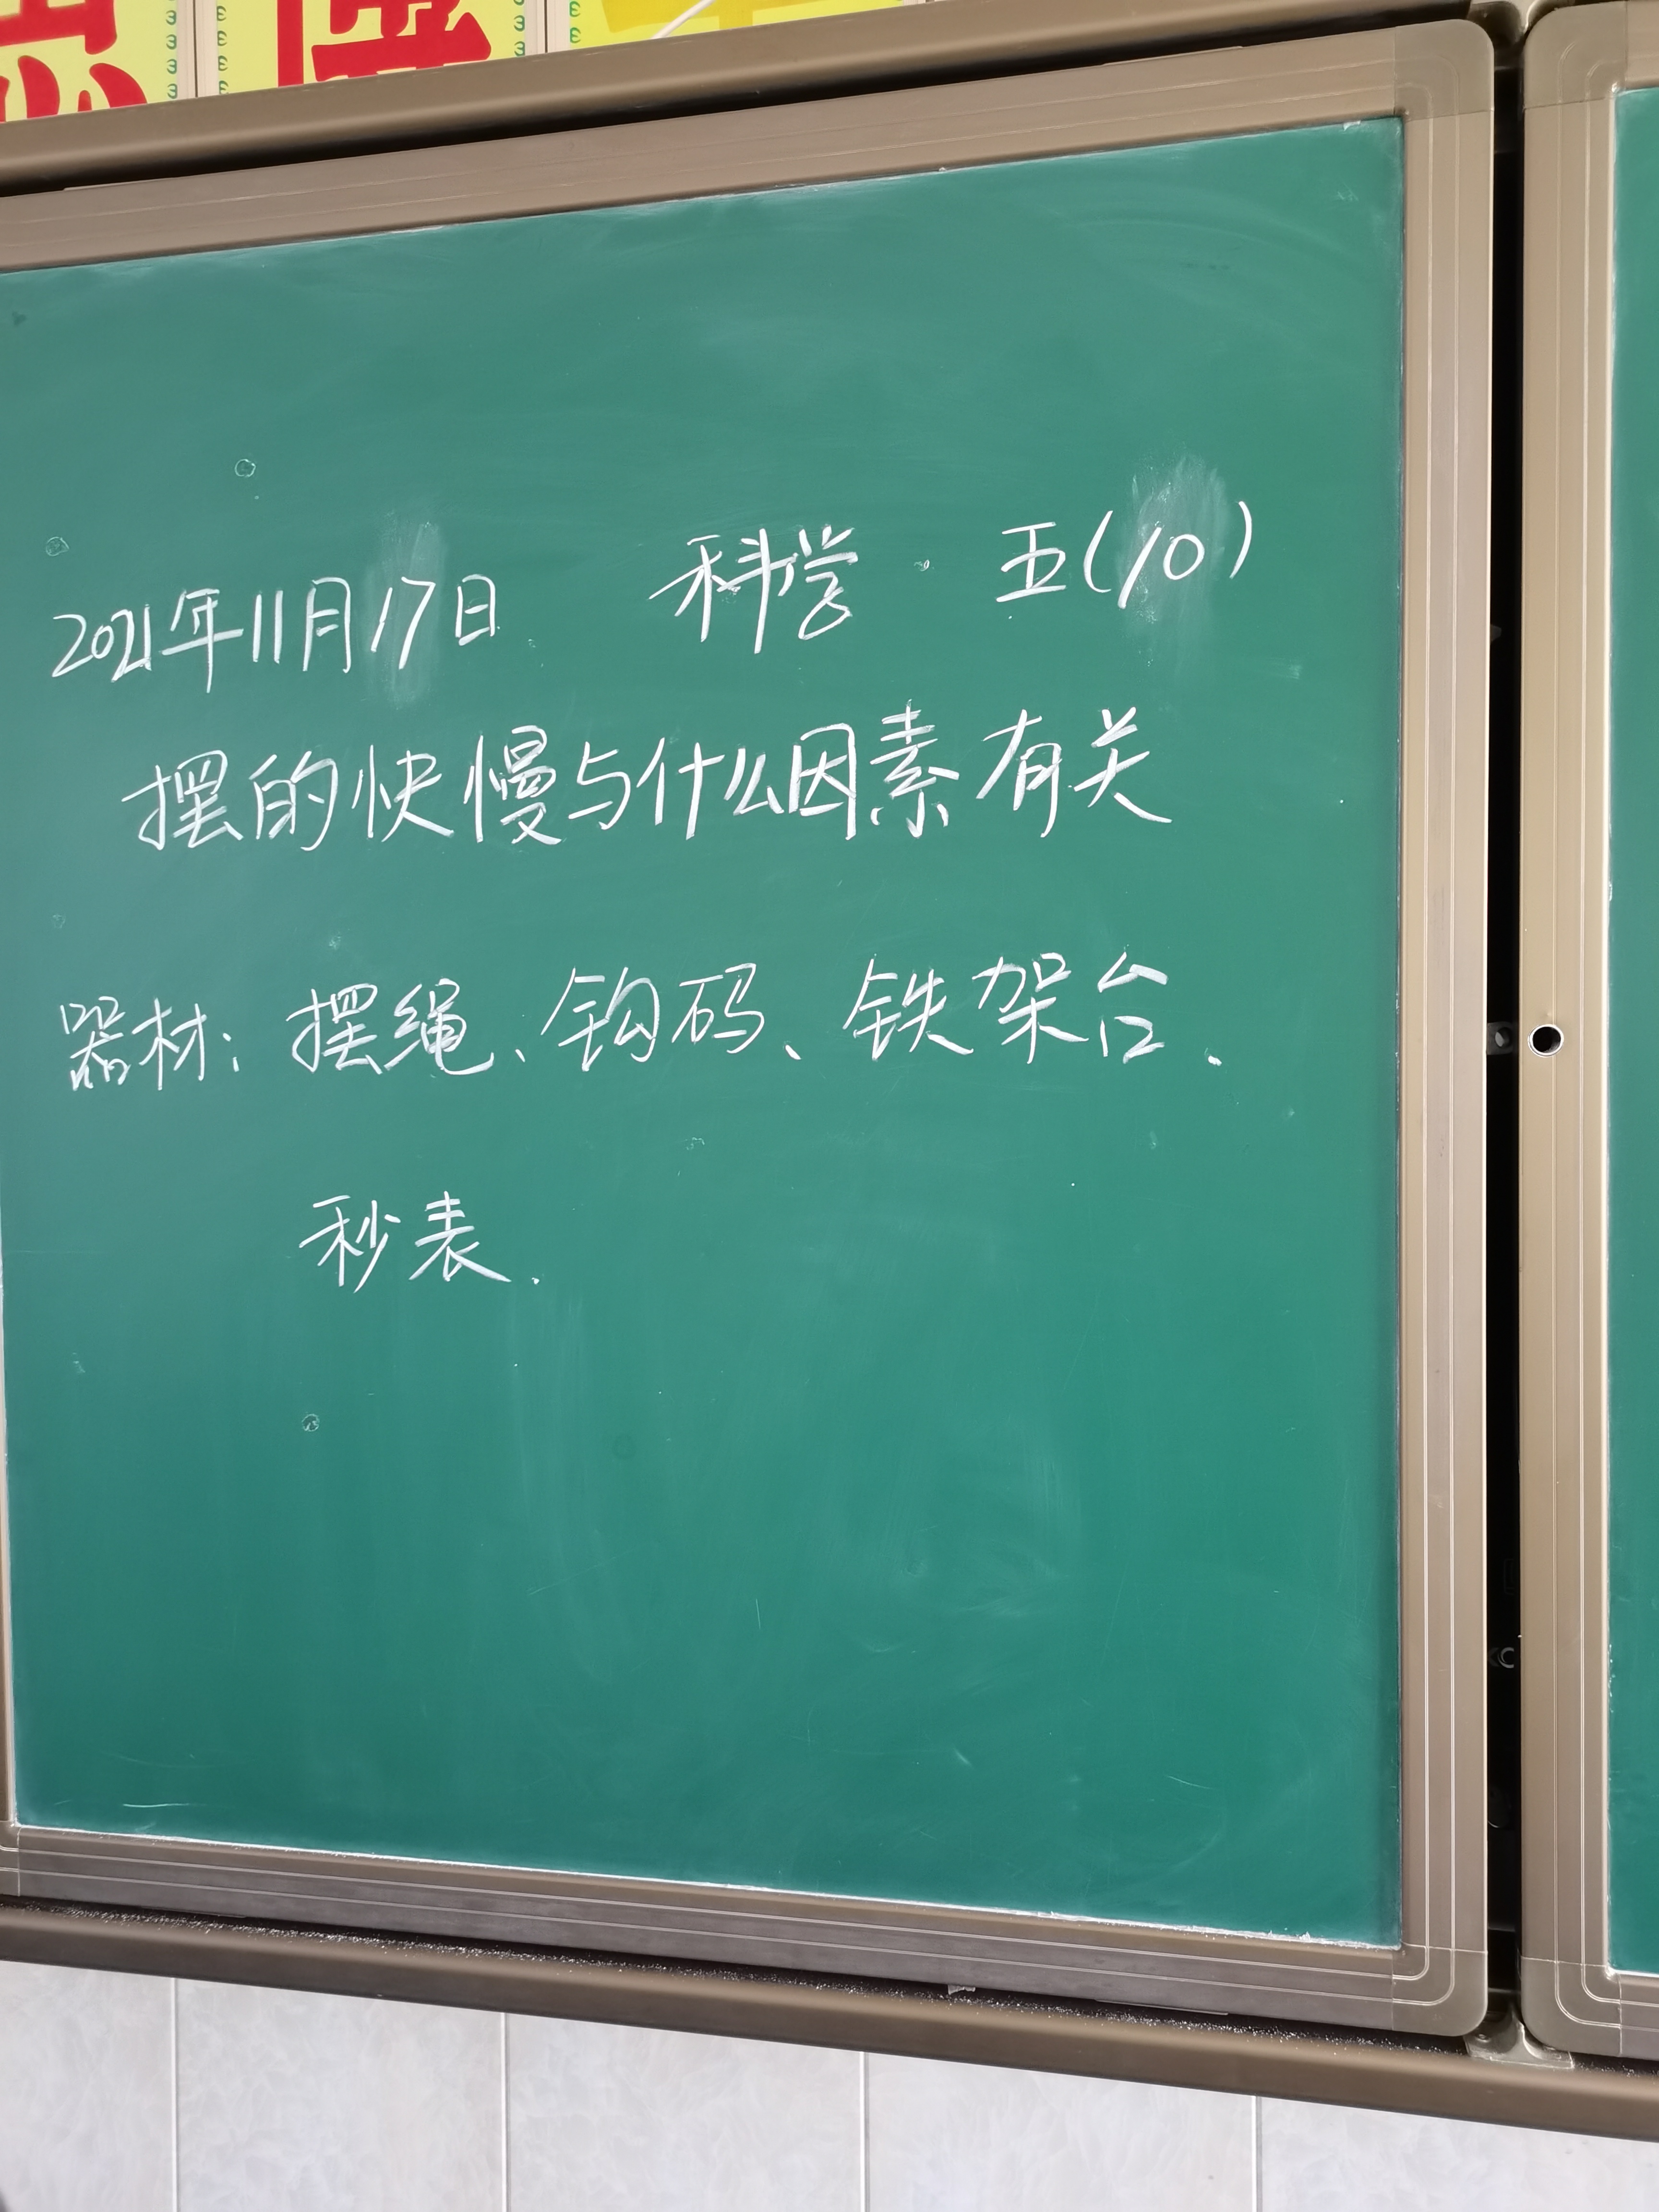 2021年11月17日 科学 五(10)
摆的快慢与什么因素有关
器材：摆绳、钩码、铁架台、
秒表.